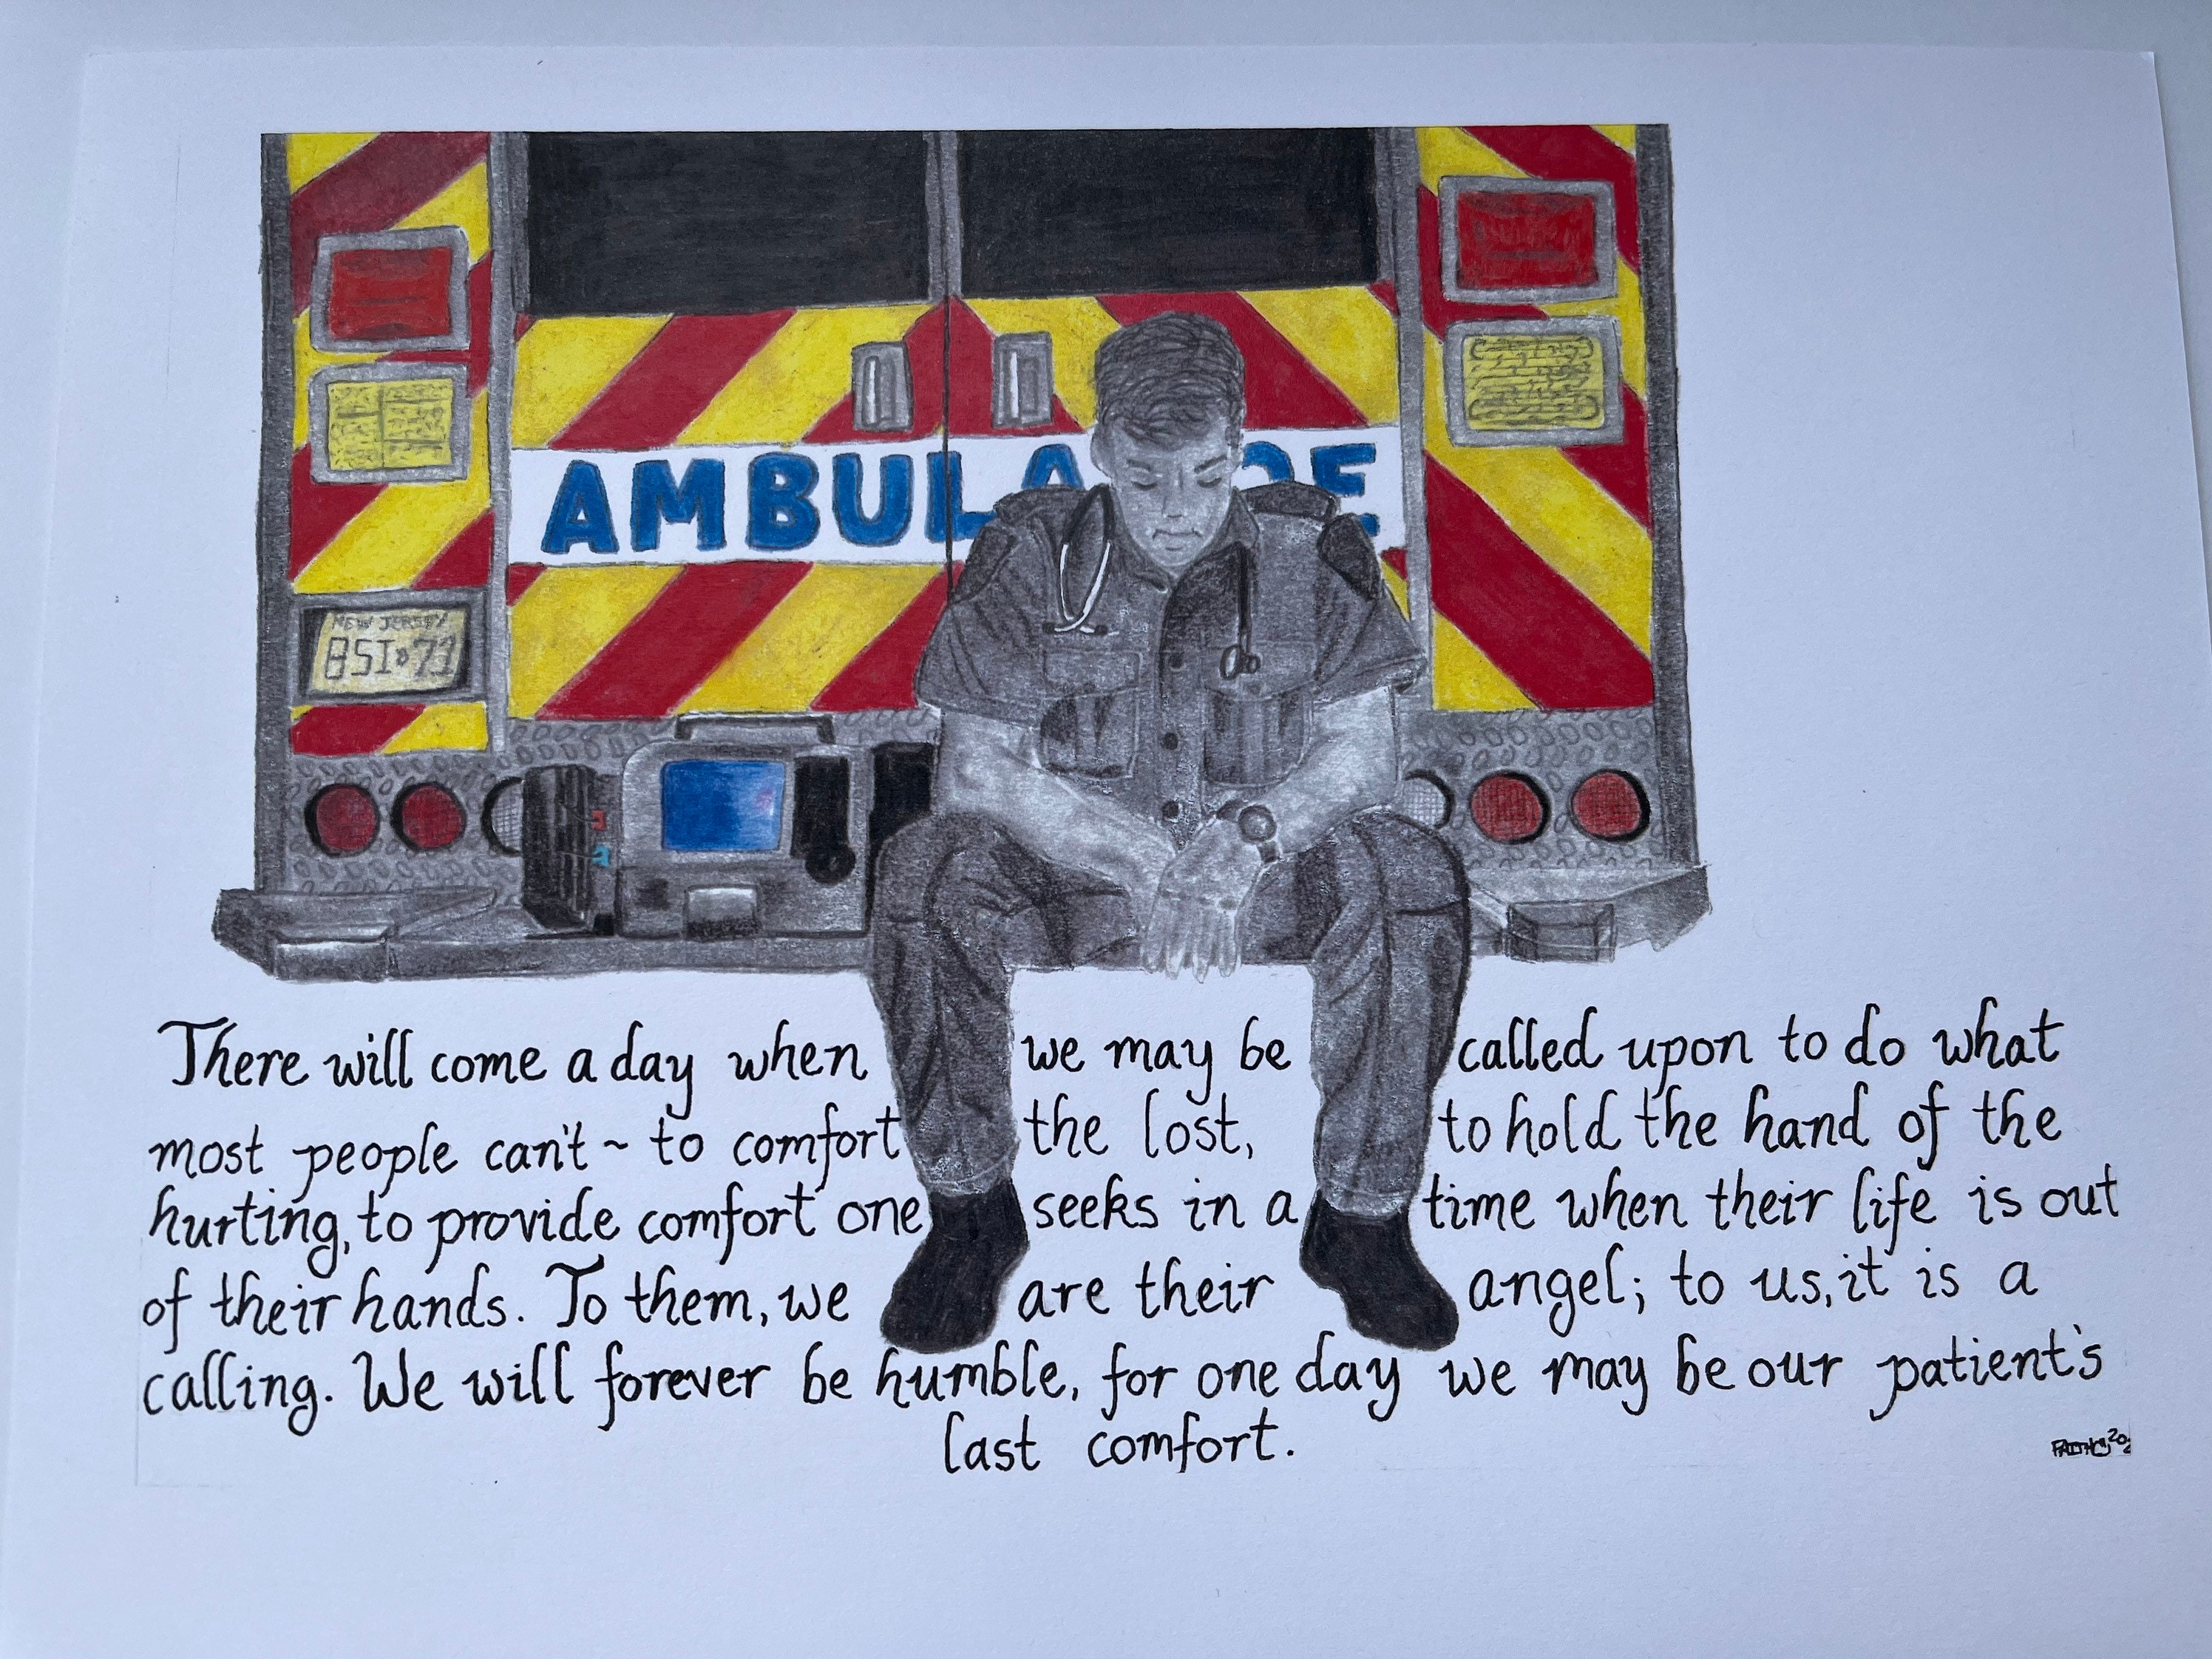 AMBULA CE
NEW JERSEY
There will come a day when we may be called upon to do what
most people can't ~ to comfort the lost, to hold the hand of the
hurting, to provide comfort one seeks in a time when their life is out
of their hands. To them, we are their angel; to us, it is a
calling. We will forever be humble, for one day we may be our patient's
last comfort.